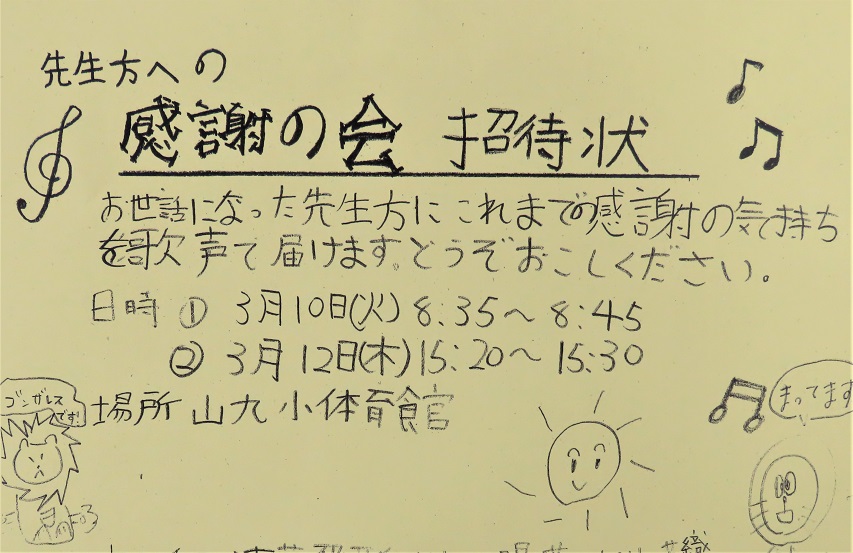 先生方への
感謝の会 招待状
お世話になった先生方に これまでの感謝の気持ち
を歌声で届けます。どうぞおこしください。
日時 ① 3月10日(火) 8:35〜8:45
② 3月12日(木) 15:20〜15:30
場所 山九小体育館
ゴンザレス
です!
まってます